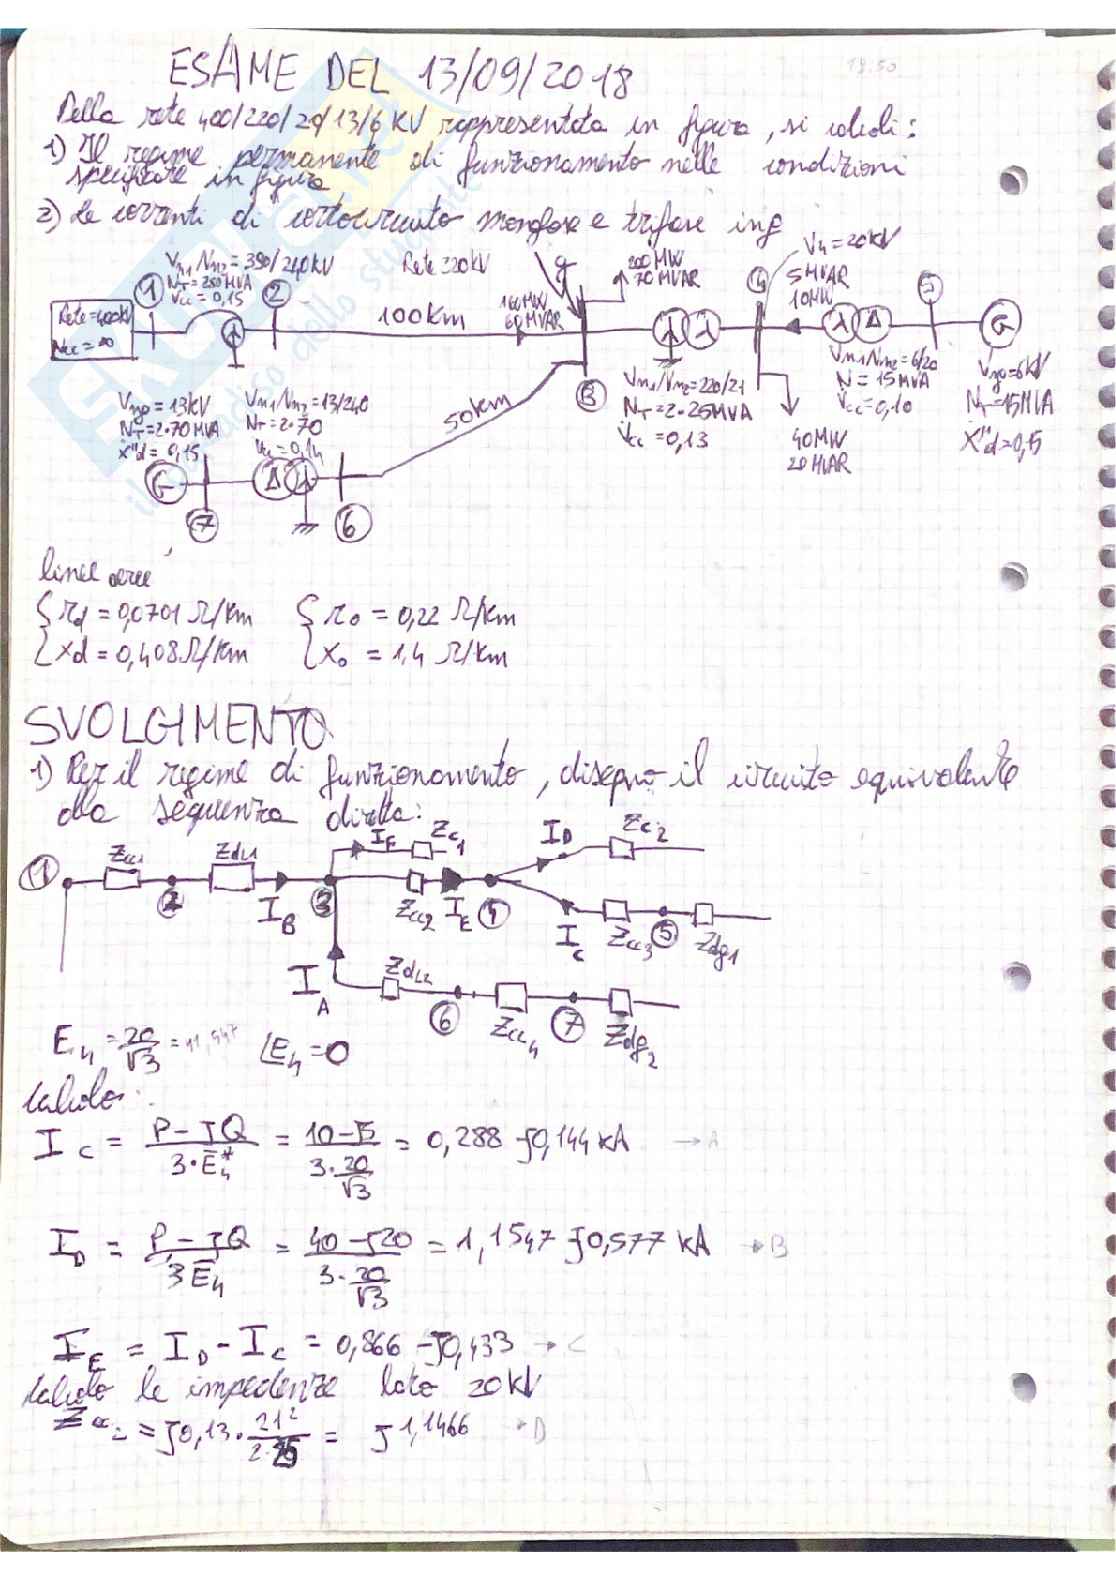 ESAME DEL 13/09/2018
18.50
Della rete 400/220/20/13/6 KV rappresentata in figura, si calcoli:
1) Il regime permanente di funzionamento nelle condizioni
specificate in figura
2) Le correnti di cortocircuito monofase e trifase in g
Rete=400kV
Ncc = ∞
1
Vn1/Vn2 = 390/240kV
NT = 250MVA
Vcc = 0,15
2
Rete 220kV
100km
160MW
60MVAR
g
200MW
70MVAR
3
Vn1/Vn2=220/21
NT=2·25MVA
Vcc=0,13
4
V4=20kV
5MVAR
10MW
40MW
20MVAR
Vn1/Vn2=6/20
N=15MVA
Vcc=0,10
5
G
Vng=6kV
NT=15MVA
X"d=0,15
50km
Vng=13kV
NT=2·70MVA
X"d=0,15
Vn1/Vn2=13/240
NT=2·70
Vcc=0,14
G
7
6
linee aeree
rd = 0,0701 Ω/km
r0 = 0,22 Ω/km
xd = 0,408 Ω/km
x0 = 1,4 Ω/km
SVOLGIMENTO
1) Per il regime di funzionamento, disegno il circuito equivalente
alla sequenza diretta:
1 Zcc1 2 ZdL1 IB 3 IF Zc1 Zcc2 IE 4 ID Zc2
IC Zcc3 5 Zdg1
IA ZdL2 6 Zcc4 7 Zdg2
E4 = 20/√3 = 11,547 ∠E4 = 0
Calcolo:
IC = P-JQ / 3·E4* = 10-J5 / 3·20/√3 = 0,288 -J0,144 kA → A
ID = P-JQ / 3E4 = 40-J20 / 3·20/√3 = 1,1547 -J0,577 kA → B
IE = ID - IC = 0,866 -J0,433 → C
Calcolo le impedenze lato 20kV
Zcc2 = J0,13·21²/2·25 = J1,1466 → D